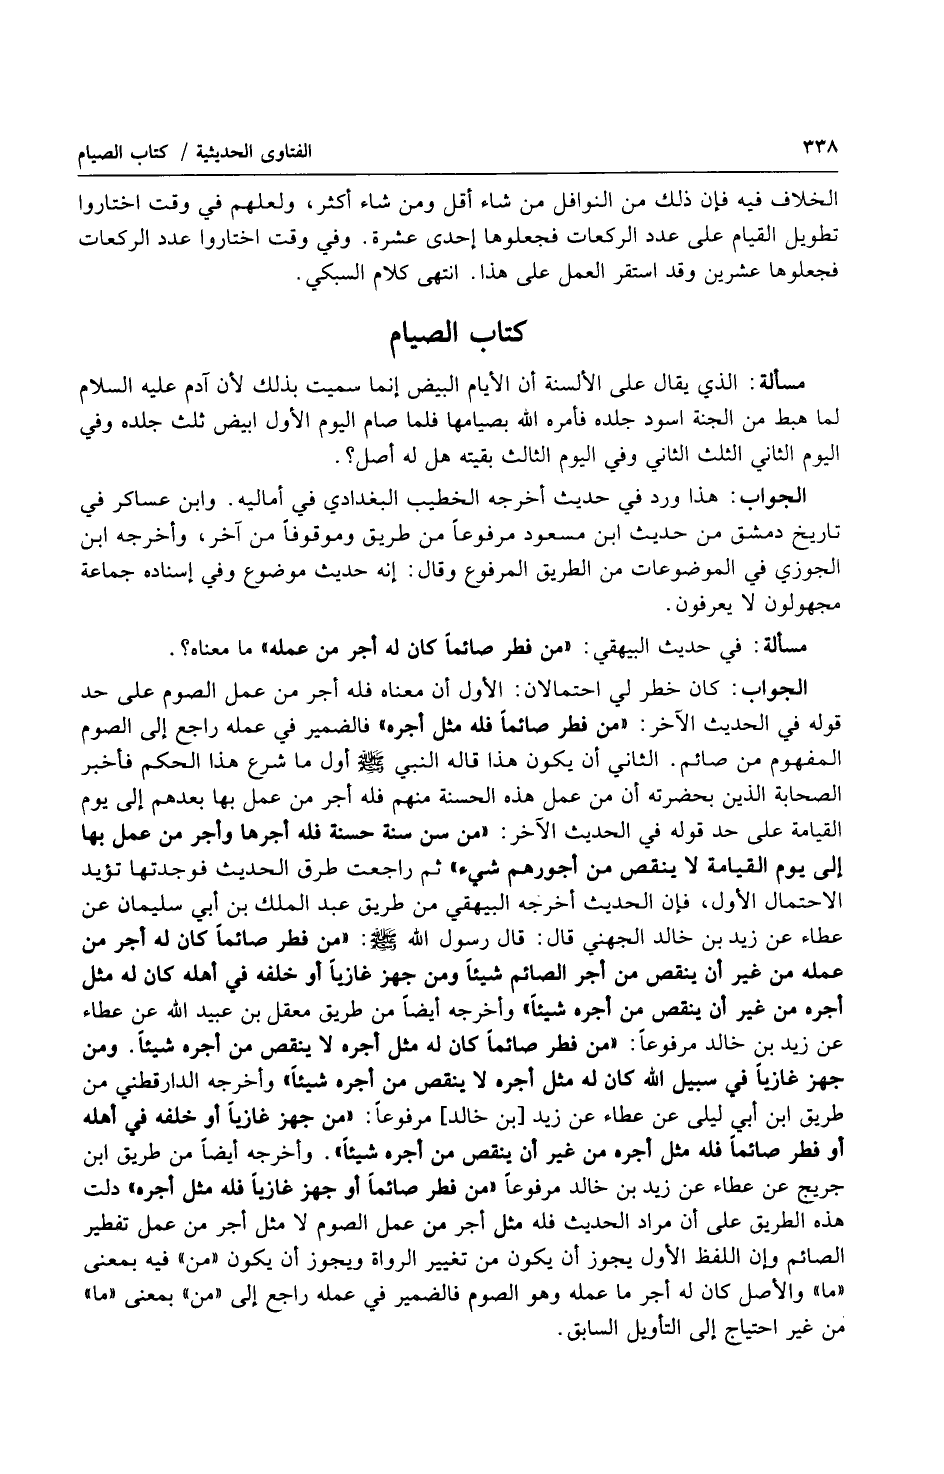 ٣٣٨
الفتاوى الحديثية / كتاب الصيام
الخلاف فيه فإن ذلك من النوافل من شاء أقل ومن شاء أكثر، ولعلهم في وقت اختاروا
تطويل القيام على عدد الركعات فجعلوها إحدى عشرة. وفي وقت اختاروا عدد الركعات
فجعلوها عشرين وقد استقر العمل على هذا. انتهى كلام السبكي.
كتاب الصيام
مسألة: الذي يقال على الألسنة أن الأيام البيض إنما سميت بذلك لأن آدم عليه السلام
لما هبط من الجنة اسود جلده فأمره الله بصيامها فلما صام اليوم الأول ابيض ثلث جلده وفي
اليوم الثاني الثلث الثاني وفي اليوم الثالث بقيته هل له أصل؟.
الجواب: هذا ورد في حديث أخرجه الخطيب البغدادي في أماليه. وابن عساكر في
تاريخ دمشق من حديث ابن مسعود مرفوعاً من طريق وموقوفاً من آخر، وأخرجه ابن
الجوزي في الموضوعات من الطريق المرفوع وقال: إنه حديث موضوع وفي إسناده جماعة
مجهولون لا يعرفون.
مسألة: في حديث البيهقي: «من فطر صائماً كان له أجر من عمله» ما معناه؟.
الجواب: كان خطر لي احتمالان: الأول أن معناه فله أجر من عمل الصوم على حد
قوله في الحديث الآخر: «من فطر صائماً فله مثل أجره» فالضمير في عمله راجع إلى الصوم
المفهوم من صائم. الثاني أن يكون هذا قاله النبي ﷺ أول ما شرع هذا الحكم فأخبر
الصحابة الذين بحضرته أن من عمل هذه الحسنة منهم فله أجر من عمل بها بعدهم إلى يوم
القيامة على حد قوله في الحديث الآخر: «من سن سنة حسنة فله أجرها وأجر من عمل بها
إلى يوم القيامة لا ينقص من أجورهم شيء» ثم راجعت طرق الحديث فوجدتها تؤيد
الاحتمال الأول، فإن الحديث أخرجه البيهقي من طريق عبد الملك بن أبي سليمان عن
عطاء عن زيد بن خالد الجهني قال: قال رسول الله ﷺ: «من فطر صائماً كان له أجر من
عمله من غير أن ينقص من أجر الصائم شيئاً ومن جهز غازياً أو خلفه في أهله كان له مثل
أجره من غير أن ينقص من أجره شيئاً» وأخرجه أيضاً من طريق معقل بن عبيد الله عن عطاء
عن زيد بن خالد مرفوعاً: «من فطر صائماً كان له مثل أجره لا ينقص من أجره شيئاً. ومن
جهز غازياً في سبيل الله كان له مثل أجره لا ينقص من أجره شيئاً» وأخرجه الدارقطني من
طريق ابن أبي ليلى عن عطاء عن زيد [بن خالد] مرفوعاً: «من جهز غازياً أو خلفه في أهله
أو فطر صائماً فله مثل أجره من غير أن ينقص من أجره شيئاً». وأخرجه أيضاً من طريق ابن
جريج عن عطاء عن زيد بن خالد مرفوعاً «من فطر صائماً أو جهز غازياً فله مثل أجره» دلت
هذه الطريق على أن مراد الحديث فله مثل أجر من عمل الصوم لا مثل أجر من عمل تفطير
الصائم وإن اللفظ الأول يجوز أن يكون من تغيير الرواة ويجوز أن يكون «من» فيه بمعنى
«ما» والأصل كان له أجر ما عمله وهو الصوم فالضمير في عمله راجع إلى «من» بمعنى «ما»
من غير احتياج إلى التأويل السابق.